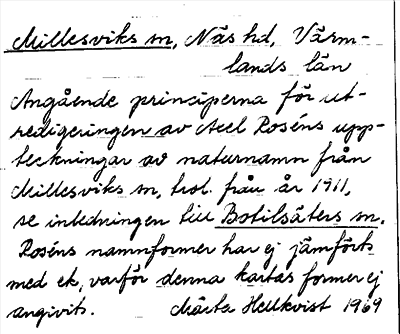 Millesviks sn, Näs hd, Värm-
lands län
Angående principerna för ut-
redigeringen av Axel Roséns upp-
teckningar av naturnamn från
Millesviks sn, trol. från år 1911,
se inledningen till Botilsäters sn.
Roséns namnformer har ej jämförts
med ek, varför denna kartas former ej
angivits. Märta Hellkvist 1969